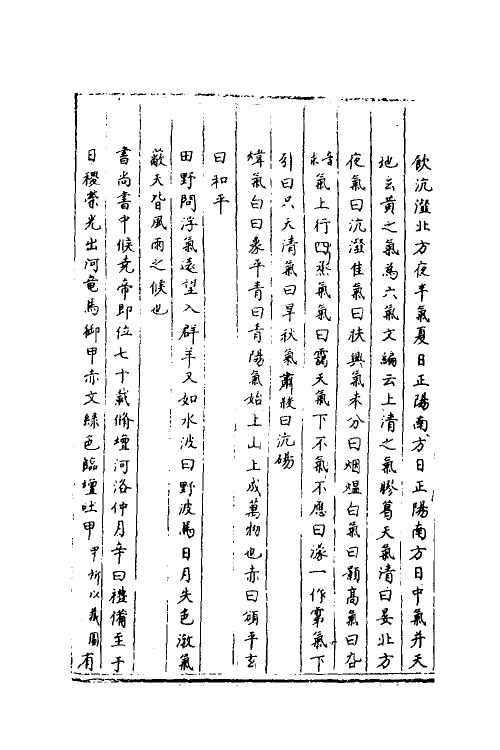 飲沆瀣北方夜半氣夏日正陽南方日正陽南方日中氣并天
地云黃之氣為六氣文編云上清之氣膠葛天氣清曰晏北方
夜氣曰沆瀣佳氣曰扶輿氣未分曰烟煴白氣曰顥高氣曰
氣上行四氣氣曰靄天氣下不氣不應曰濛一作霿氣下
引曰只天清氣曰旻秋氣肅殺曰沆碭
煒氣白曰象平青曰青陽氣始上山上成萬物也赤曰頎平玄
曰和平
田野間浮氣遠望入群羊又如水波曰野波馬日月失色激氣
蔽天皆風雨之候也
書尚書中候堯帝即位七十載脩壇河洛仲月辛日禮備至于
日稷榮光出河竜馬御甲赤文綠色臨壇吐甲甲所以裁圖有